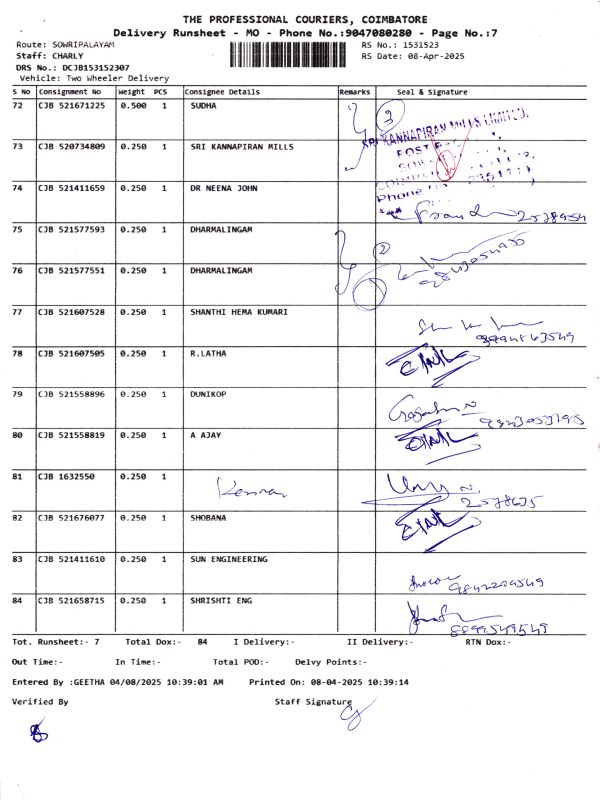 THE PROFESSIONAL COURIERS, COIMBATORE
Delivery Runsheet - MO - Phone No.:9047080280 - Page No.:7
Route: SOWRIPALAYAM RS No.: 1531523
Staff: CHARLY RS Date: 08-Apr-2025
DRS No.: DCJB153152307
Vehicle: Two Wheeler Delivery
S No Consignment No Weight PCS Consignee Details Remarks Seal & Signature
72 CJB 521671225 0.500 1 SUDHA 3
SRI KANNAPIRAN MILLS LIMITED.
73 CJB 520734809 0.250 1 SRI KANNAPIRAN MILLS
POST
74 CJB 521411659 0.250 1 DR NEENA JOHN
Phone No.
75 CJB 521577593 0.250 1 DHARMALINGAM 2
76 CJB 521577551 0.250 1 DHARMALINGAM
77 CJB 521607528 0.250 1 SHANTHI HEMA KUMARI
78 CJB 521607505 0.250 1 R.LATHA
79 CJB 521558896 0.250 1 DUNIKOP
80 CJB 521558819 0.250 1 A AJAY
81 CJB 1632550 0.250 1
2578635
82 CJB 521676077 0.250 1 SHOBANA
83 CJB 521411610 0.250 1 SUN ENGINEERING
9842209549
84 CJB 521658715 0.250 1 SHRISHTI ENG
8899549549
Tot. Runsheet:- 7 Total Dox:- 84 I Delivery:- II Delivery:- RTN Dox:-
Out Time:- In Time:- Total POD:- Delvy Points:-
Entered By :GEETHA 04/08/2025 10:39:01 AM Printed On: 08-04-2025 10:39:14
Verified By Staff Signature